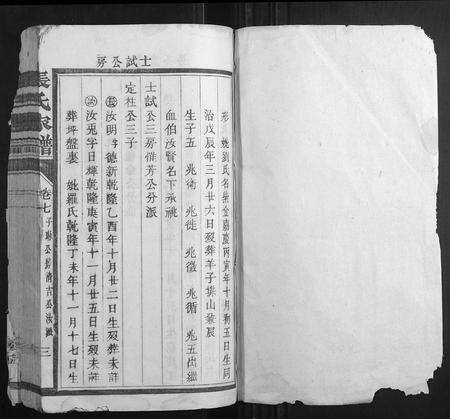 士試公房
形 妣劉氏名 金嘉慶丙寅年十月初五日生同
治戊辰年三月廿六日歿葬羊子 山 辰
生子五 兆衛 兆徙 兆徵 兆循 兆五出繼
血伯汝賢名下承祧
士試公三房備芳公分派
定柱公三子
長 汝明字德新乾隆乙酉年十月廿二日生歿葬未詳
汝兎字日輝乾隆庚寅年十一月廿五日生歿未詳
葬坪盤裏 妣羅氏乾隆丁未年十一月十七日生
張氏家譜
卷七
三